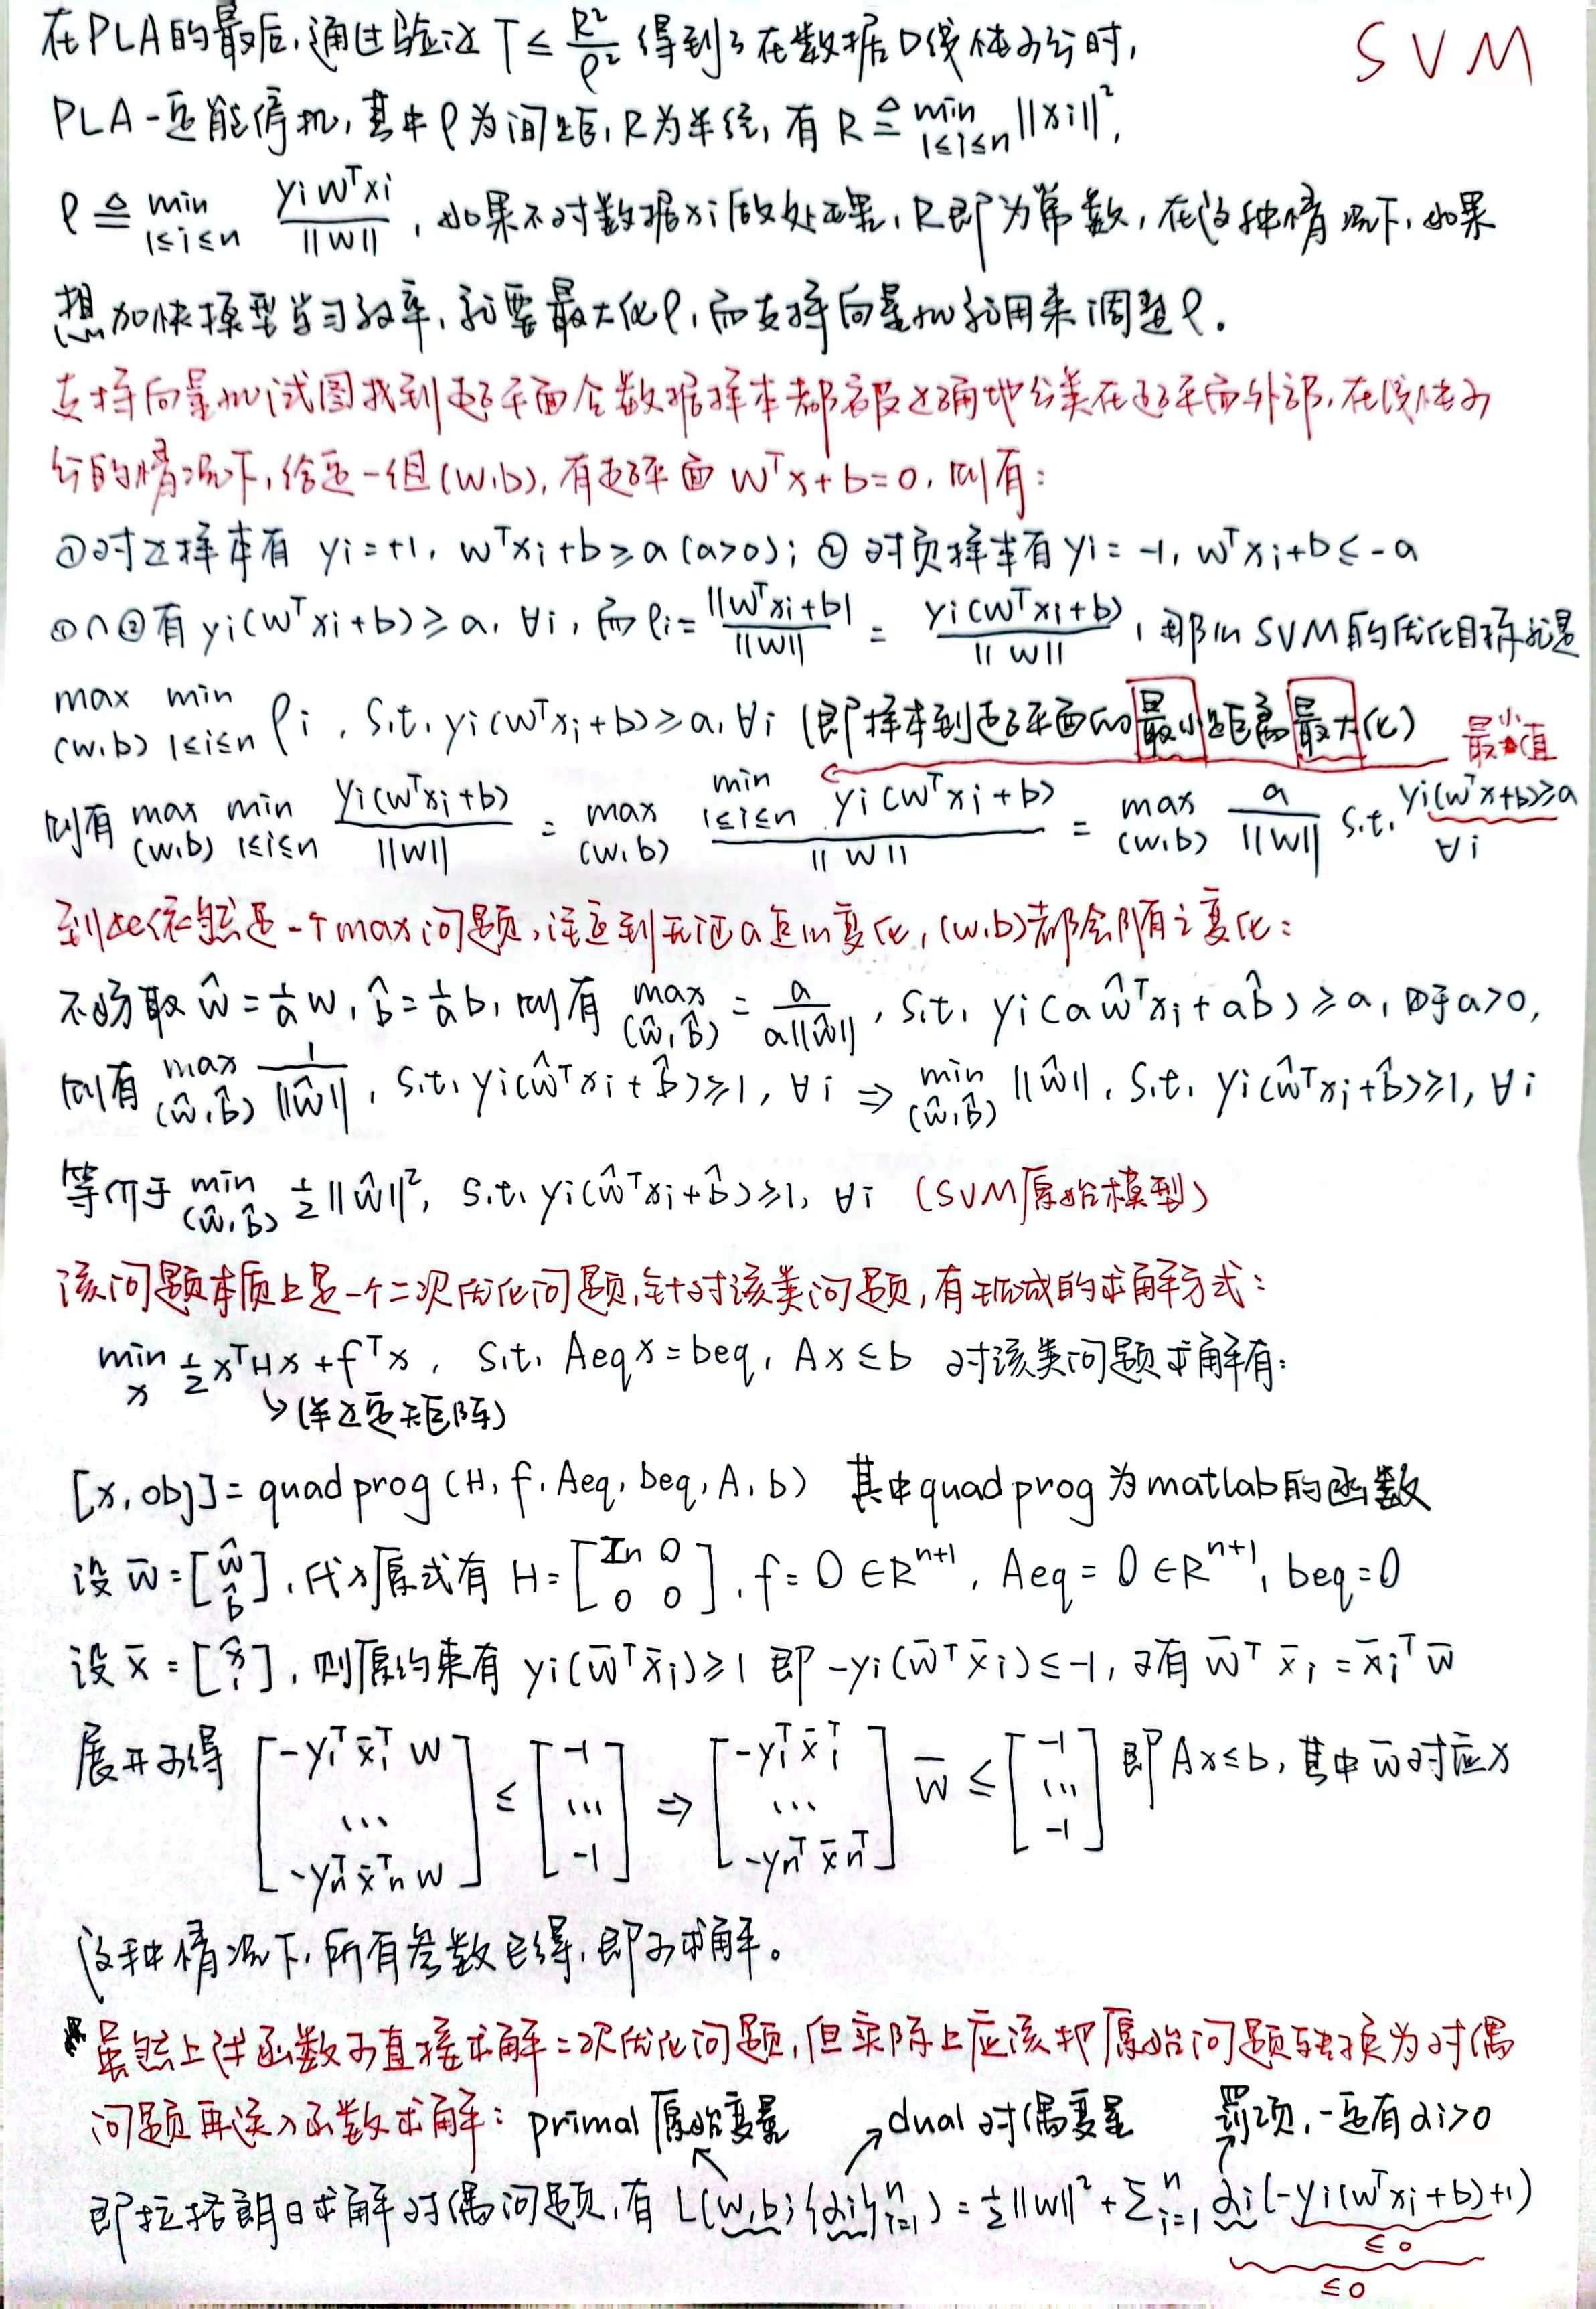 在PLA的最后,通过验证 T ≤ R²/ρ² 得到了在数据D线性可分时, SVM
PLA一定能停机,其中ρ为间距,R为半径,有 R ≜ min_{1≤i≤n} ||xi||²,
ρ ≜ min_{1≤i≤n} yiwᵀxi/||w||, 如果不对数据xi做处理,R即为常数,在这种情况下,如果
想加快模型学习效率,就要最大化ρ,而支持向量机就用来调整ρ。
支持向量机试图找到超平面令数据样本都被正确地分类在超平面外部,在线性可
分的情况下,给定一组(w,b),有超平面 wᵀx+b=0,则有:
①对正样本有 yi=+1, wᵀxi+b≥a(a>0); ②对负样本有 yi=-1, wᵀxi+b≤-a
①∩②有 yi(wᵀxi+b)≥a, ∀i, 而ρi= ||wᵀxi+b|/||w|| = yi(wᵀxi+b)/||w||, 那么SVM的优化目标就是
max_{(w,b)} min_{1≤i≤n} ρi, s.t. yi(wᵀxi+b)≥a, ∀i (即样本到超平面的最小距离最大化) 最小值
则有 max_{(w,b)} min_{1≤i≤n} yi(wᵀxi+b)/||w|| = max_{(w,b)} min_{1≤i≤n} yi(wᵀxi+b)/||w|| = max_{(w,b)} a/||w|| s.t. yi(wᵀx+b)≥a ∀i
到此依然是一个max问题,注意到无论a怎么变化,(w,b)都会随之变化:
不妨取 ŵ=1/a w, b̂=1/a b, 则有 max_{(ŵ,b̂)} = a/a||ŵ||, s.t. yi(aŵᵀxi+ab̂)≥a, 由于a>0,
则有 max_{(ŵ,b̂)} 1/||ŵ||, s.t. yi(ŵᵀxi+b̂)≥1, ∀i ⇒ min_{(ŵ,b̂)} ||ŵ||, s.t. yi(ŵᵀxi+b̂)≥1, ∀i
等价于 min_{(ŵ,b̂)} 1/2||ŵ||², s.t. yi(ŵᵀxi+b̂)≥1, ∀i (SVM原始模型)
该问题本质上是一个二次优化问题,针对该类问题,有现成的求解方式:
min_x 1/2xᵀHx+fᵀx, s.t. Aeqx=beq, Ax≤b 对该类问题求解有:
↳(半正定矩阵)
[x,obj]=quadprog(H,f,Aeq,beq,A,b) 其中quadprog为matlab的函数
设 w̄=[ŵ b̂], 代入原式有 H=[In 0; 0 0], f=0∈Rⁿ⁺¹, Aeq=0∈Rⁿ⁺¹, beq=0
设 x̄=[x̂ 1], 则原约束有 yi(w̄ᵀx̄i)≥1 即 -yi(w̄ᵀx̄i)≤-1, 又有 w̄ᵀx̄i=x̄iᵀw̄
展开可得 [-y₁ᵀx̄₁ᵀw ... -ynᵀx̄ᵀn w] ≤ [-1 ... -1] ⇒ [-y₁ᵀx̄₁ᵀ ... -ynᵀx̄nᵀ] w̄ ≤ [-1 ... -1] 即Ax≤b, 其中w̄对应x
这种情况下,所有参数已得,即可求解。
虽然上述函数可直接求解二次优化问题,但实际上应该把原始问题转换为对偶
问题再送入函数求解: primal 原始变量 dual 对偶变量 罚项,一定有αi>0
即拉格朗日求解对偶问题,有 L(w,b;{αi}ⁿᵢ₌₁)=1/2||w||²+∑ⁿᵢ₌₁αi(-yi(wᵀxi+b)+1)
≤0
≤0